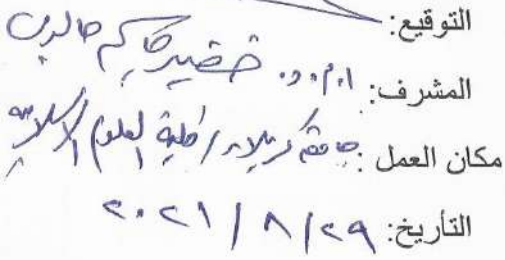 التوقيع:
المشرف: ا.م.د. خضير كاظم
مكان العمل: جامعة كربلاء/ كلية العلوم الاسلامية
التأريخ: ٢٩/ ٨/ ٢٠٢١